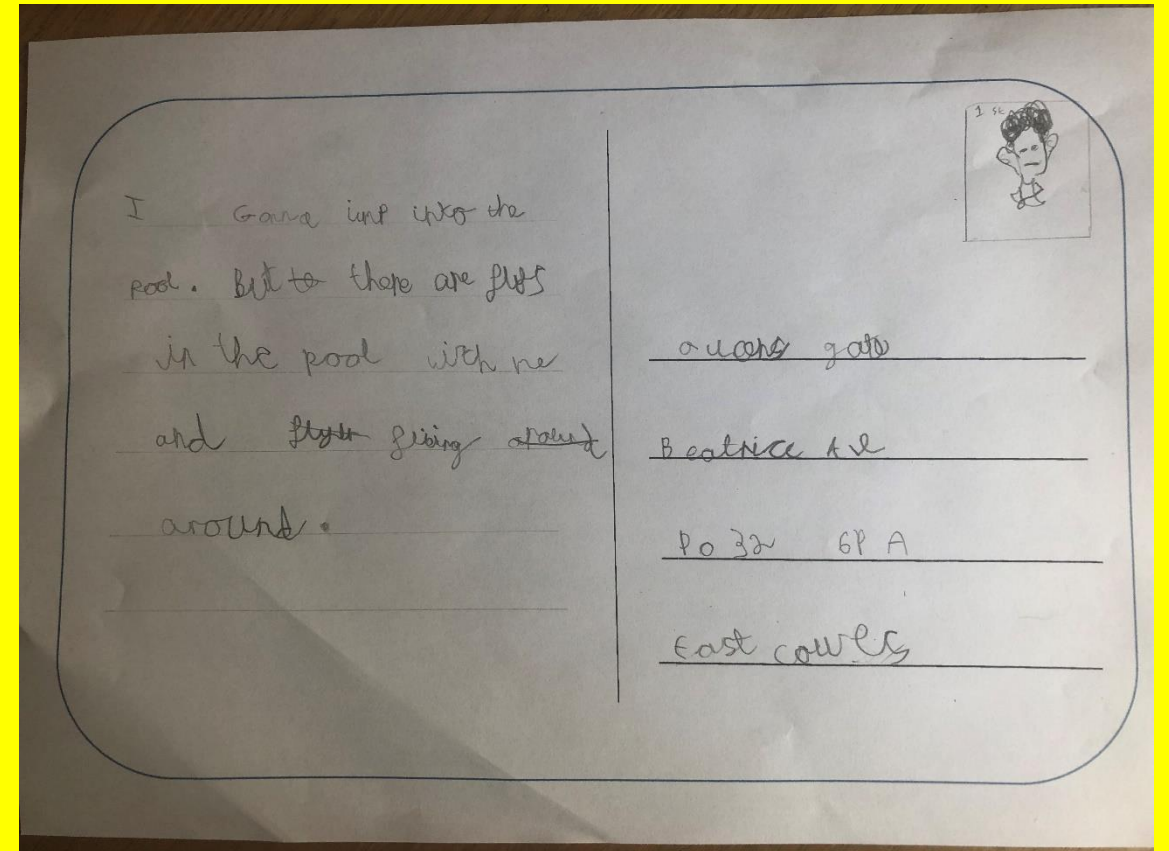 1 st
I Gana iump into the
pool. But to there are flys
in the pool with me
and flyin fliing around
around.
queens gate
Beatrice Ave
Po 32 6P A
East cowes